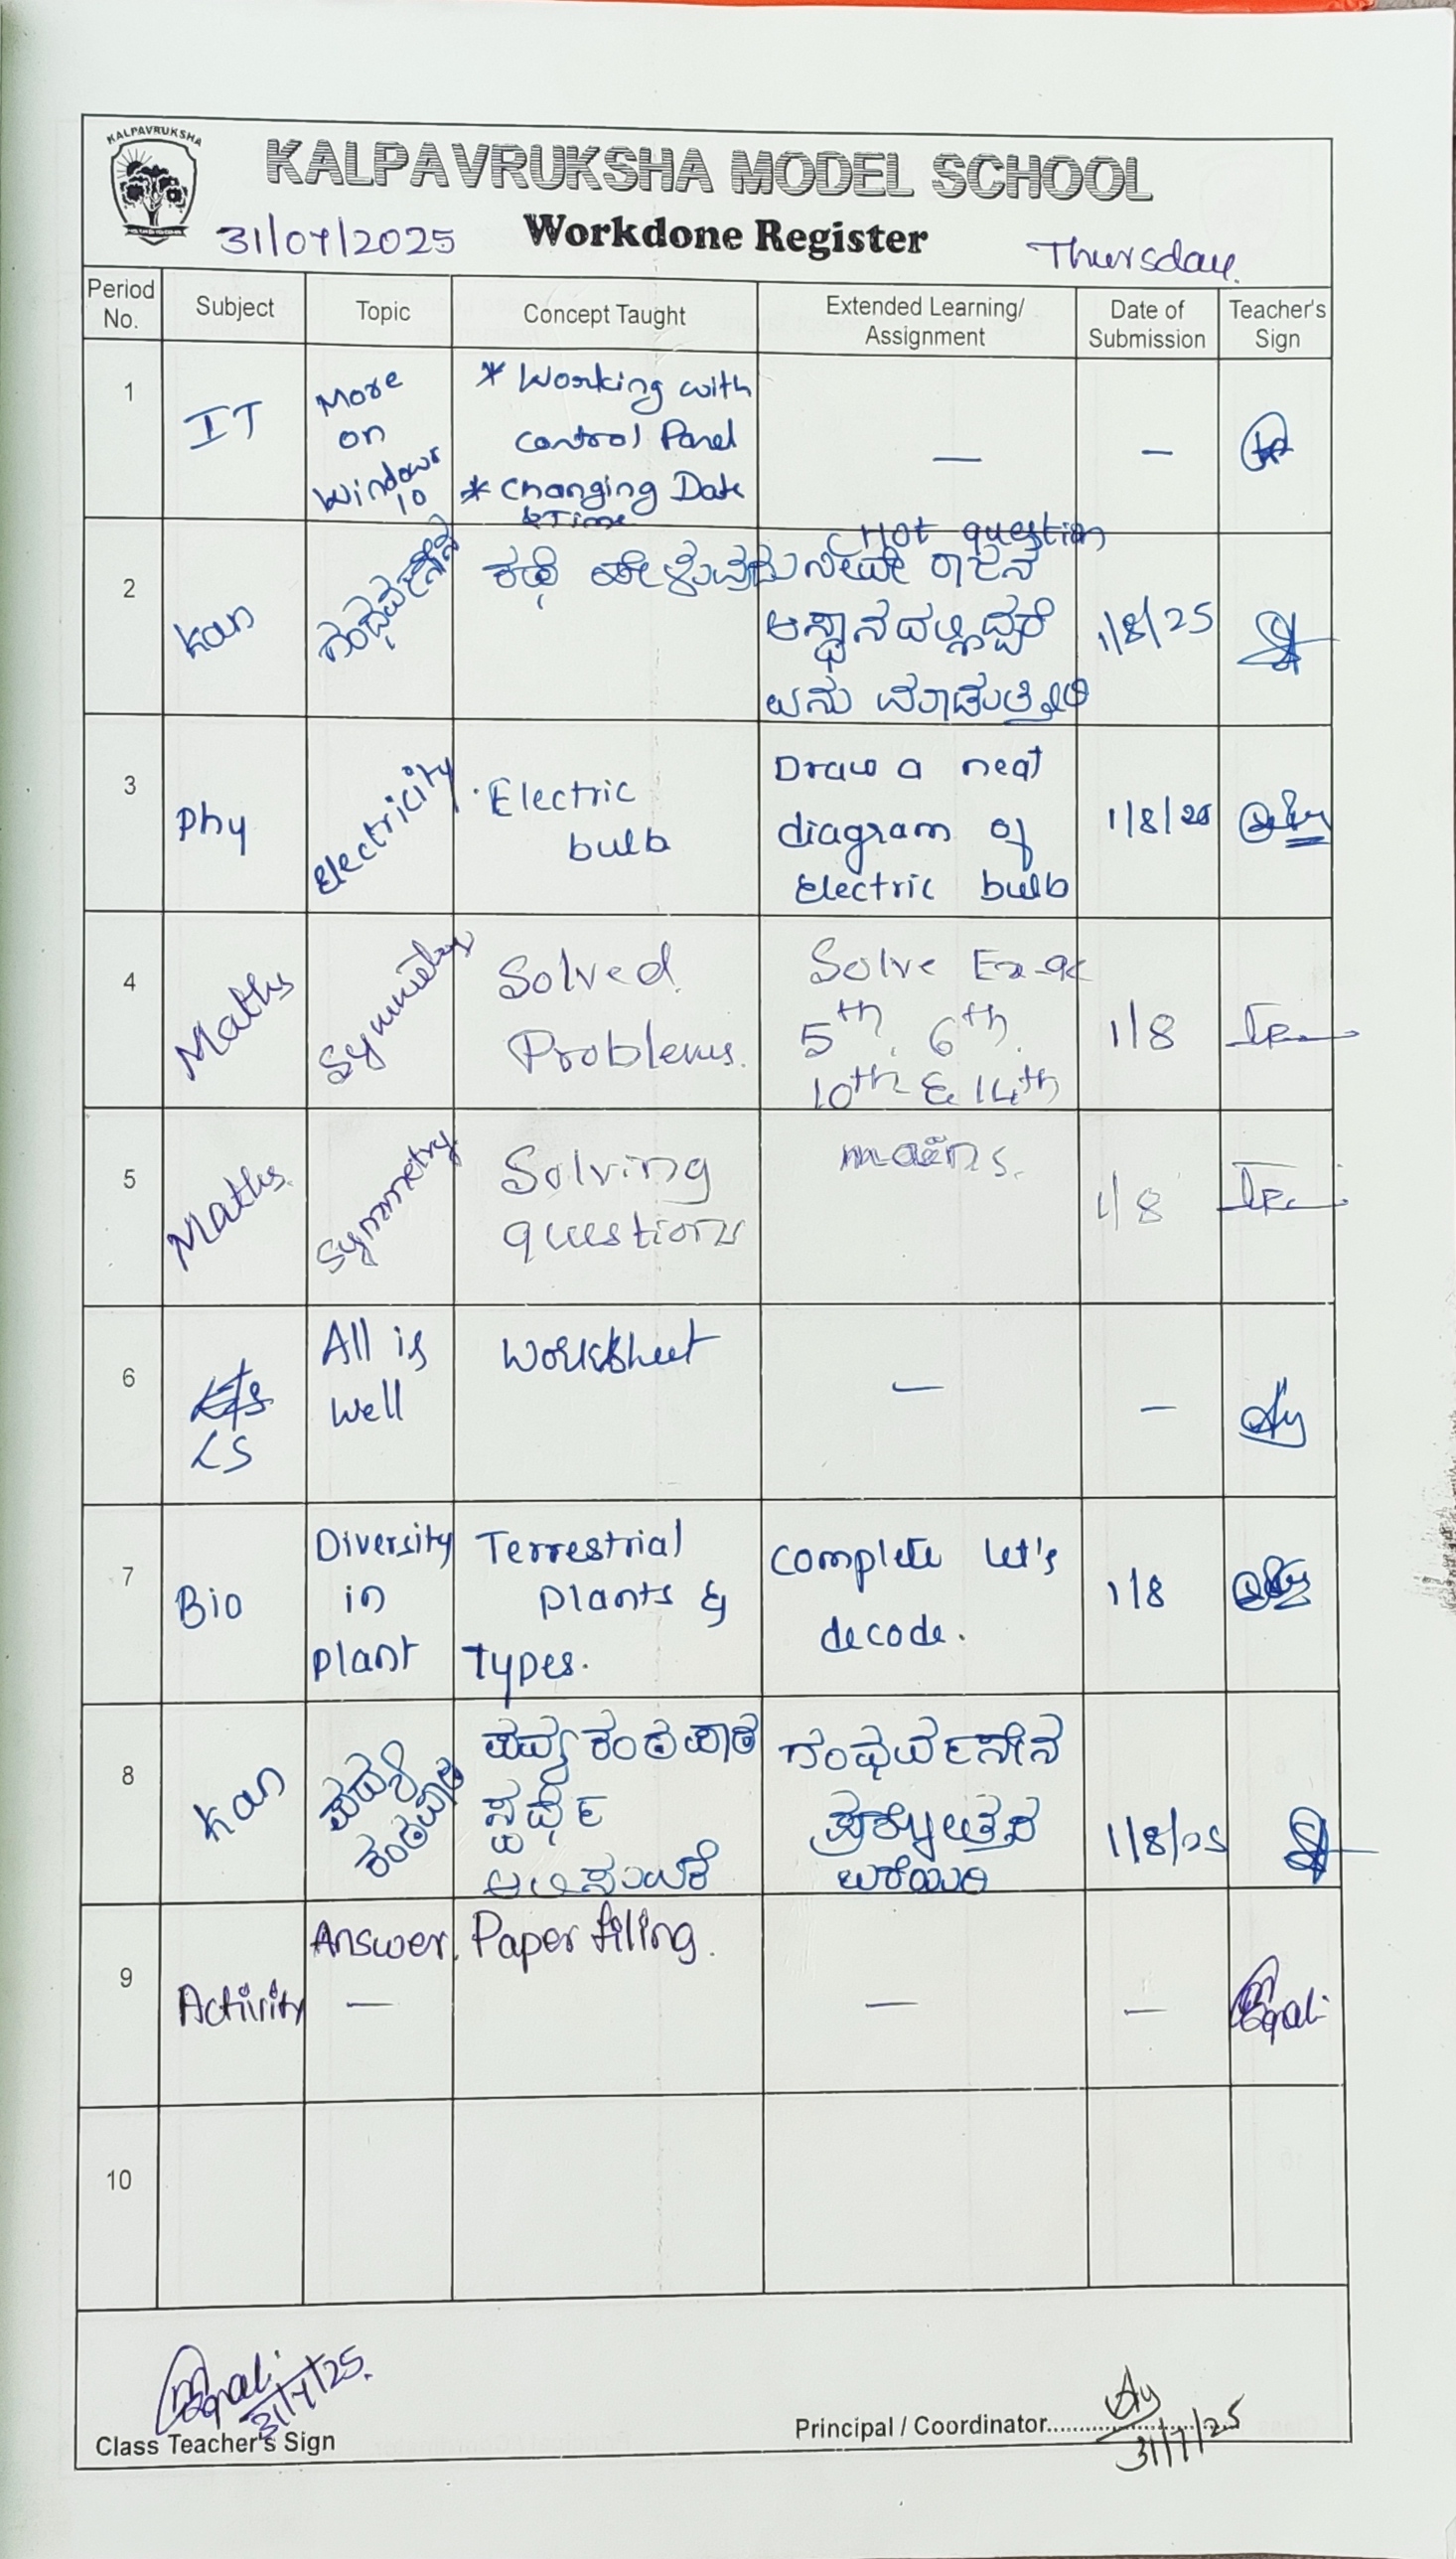 KALPAVRUKSHA
KALPAVRUKSHA MODEL SCHOOL
31/07/2025 Workdone Register Thursday.
Period No. Subject Topic Concept Taught Extended Learning/ Assignment Date of Submission Teacher's Sign
1 IT More on Windows 10 * Working with Control Panel — —
* Changing Date & Time
2 Kan ಗಂಧರ್ವಸೇನ ಕಥೆ ಹೇಳುವುದು Hot question
ನೀವೇ ರಾಜನ
ಆಸ್ಥಾನದಲ್ಲಿದ್ದರೆ 1/8/25
ಏನು ಮಾಡುತ್ತೀರಿ
3 Phy Electricity Electric bulb Draw a neat
diagram of 1/8/25
Electric bulb
4 Maths Symmetry Solved Problems. Solve Ex-9c
5th, 6th. 1/8
10th & 14th
5 Maths. Symmetry Solving questions mains. 1/8
6 LS All is well Worksheet — —
7 Bio Diversity in plant Terrestrial plants & types. Complete Let's decode. 1/8
8 Kan ಪದ್ಯ ಕಂಠಪಾಠ ಪದ್ಯ ಕಂಠಪಾಠ ಗಂಧರ್ವಸೇನ
ಸ್ಪರ್ಧೆ ಪ್ರಶ್ನೋತ್ತರ 1/8/25
ಬರೆಯಿರಿ
9 Activity — Answer Paper filing. — —
10
31/7/25.
Class Teacher's Sign
Principal / Coordinator
31/7/25